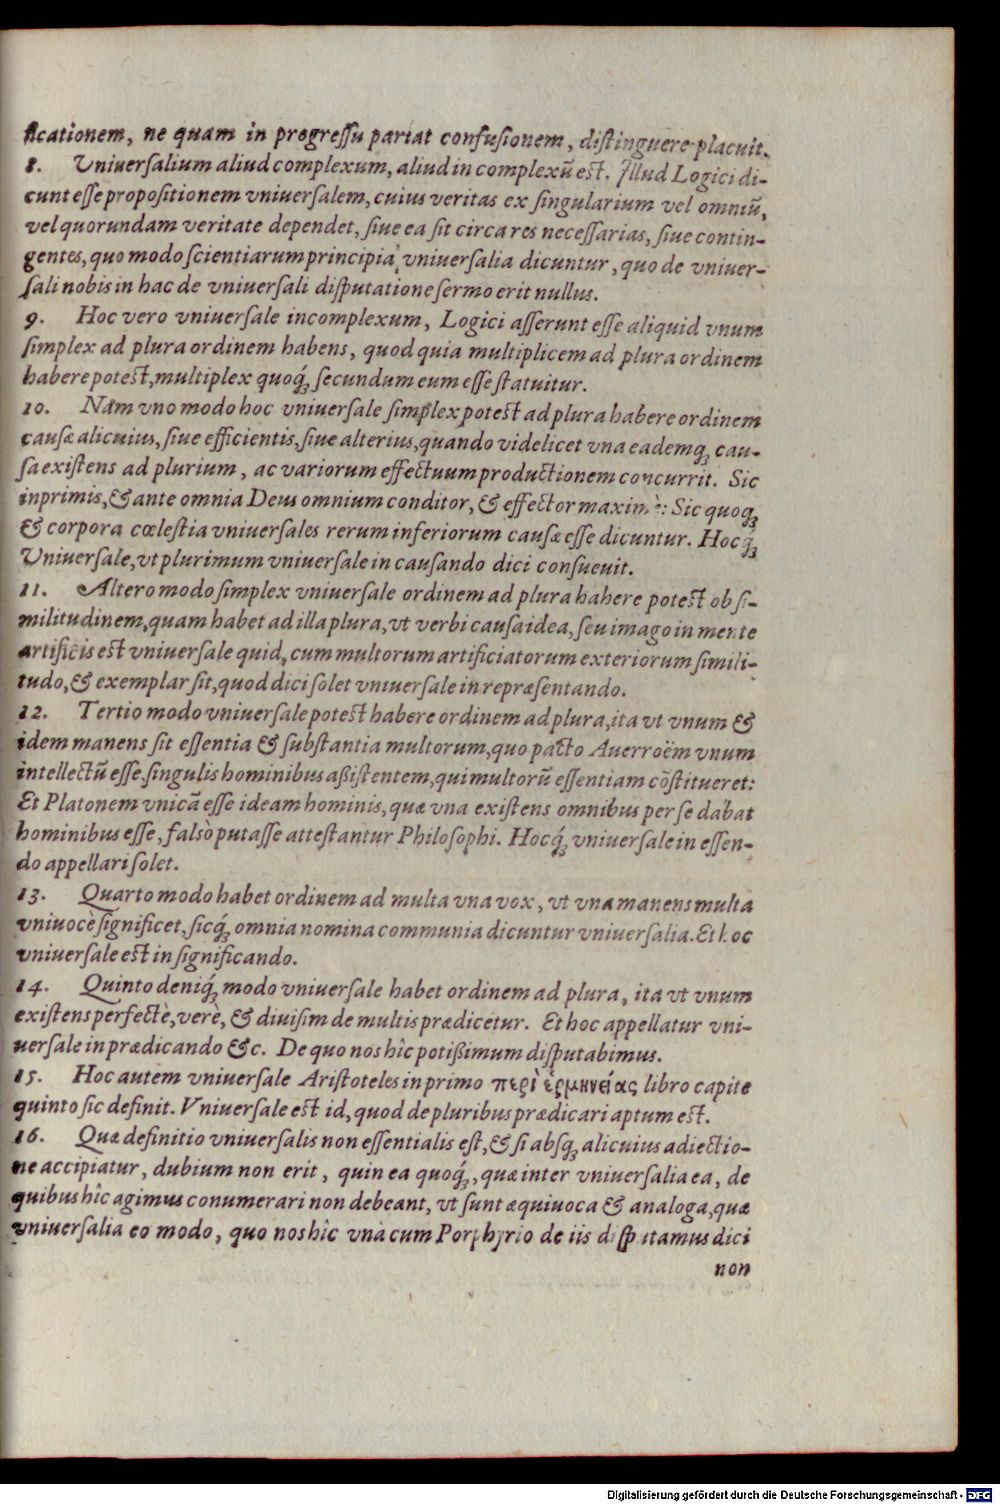 ficationem, ne quam in progreſſu pariat confuſionem, diſtinguere placuit.
8. Vniuerſalium aliud complexum, aliud in complexũ eſt. Illud Logici di-
cunt eſſe propoſitionem vniuerſalem, cuius veritas ex ſingularium vel omniũ,
vel quorundam veritate dependet, ſiue ea ſit circa res neceſſarias, ſiue contin-
gentes, quo modo ſcientiarum principia vniuerſalia dicuntur, quo de vniuer-
ſali nobis in hac de vniuerſali diſputatione ſermo erit nullus.
9. Hoc vero vniuerſale incomplexum, Logici aſſerunt eſſe aliquid vnum
ſimplex ad plura ordinem habens, quod quia multiplicem ad plura ordinem
habere poteſt, multiplex quoq́; ſecundum eum eſſe ſtatuitur.
10. Nam vno modo hoc vniuerſale ſimplex poteſt ad plura habere ordinem
cauſæ alicuius, ſiue efficientis, ſiue alterius, quando videlicet vna eademq; cau-
ſa exiſtens ad plurium, ac variorum effectuum productionem concurrit. Sic
inprimis, & ante omnia Deus omnium conditor, & effector maximè: Sic quoq;
& corpora cœleſtia vniuerſales rerum inferiorum cauſæ eſſe dicuntur. Hocq́;
Vniuerſale, vt plurimum vniuerſale in cauſando dici conſueuit.
11. Altero modo ſimplex vniuerſale ordinem ad plura hahere poteſt ob ſi-
militudinem, quam habet ad illa plura, vt verbi cauſa idea, ſeu imago in mente
artificis eſt vniuerſale quid, cum multorum artificiatorum exteriorum ſimili-
tudo, & exemplar ſit, quod dici ſolet vniuerſale in repræſentando.
12. Tertio modo vniuerſale poteſt habere ordinem ad plura, ita vt vnum &
idem manens ſit eſſentia & ſubſtantia multorum, quo pacto Auerroëm vnum
intellectũ eſſe, ſingulis hominibus aßiſtentem, qui multorũ eſſentiam cõſtitueret:
Et Platonem vnicã eſſe ideam hominis, quæ vna exiſtens omnibus per ſe dabat
hominibus eſſe, falsò putaſſe atteſtantur Philoſophi. Hocq́; vniuerſale in eſſen-
do appellari ſolet.
13. Quarto modo habet ordinem ad multa vna vox, vt vna manens multa
vniuocè ſignificet, ſicq́; omnia nomina communia dicuntur vniuerſalia. Et hoc
vniuerſale eſt in ſignificando.
14. Quinto deniq́; modo vniuerſale habet ordinem ad plura, ita vt vnum
exiſtens perfectè, verè, & diuiſim de multis prædicetur. Et hoc appellatur vni-
uerſale in prædicando &c. De quo nos hîc potißimum diſputabimus.
15. Hoc autem vniuerſale Ariſtoteles in primo περὶ ἑρμηνείας libro capite
quinto ſic definit. Vniuerſale eſt id, quod de pluribus prædicari aptum eſt.
16. Quæ definitio vniuerſalis non eſſentialis eſt, & ſi abſq; alicuius adiectio-
ne accipiatur, dubium non erit, quin ea quoq́;, quæ inter vniuerſalia ea, de
quibus hîc agimus conumerari non debeant, vt ſunt æquiuoca & analoga, quæ
vniuerſalia eo modo, quo nos hîc vnà cum Porphyrio de iis diſputamus dici
non
Digitalisierung gefördert durch die Deutsche Forschungsgemeinschaft - DFG